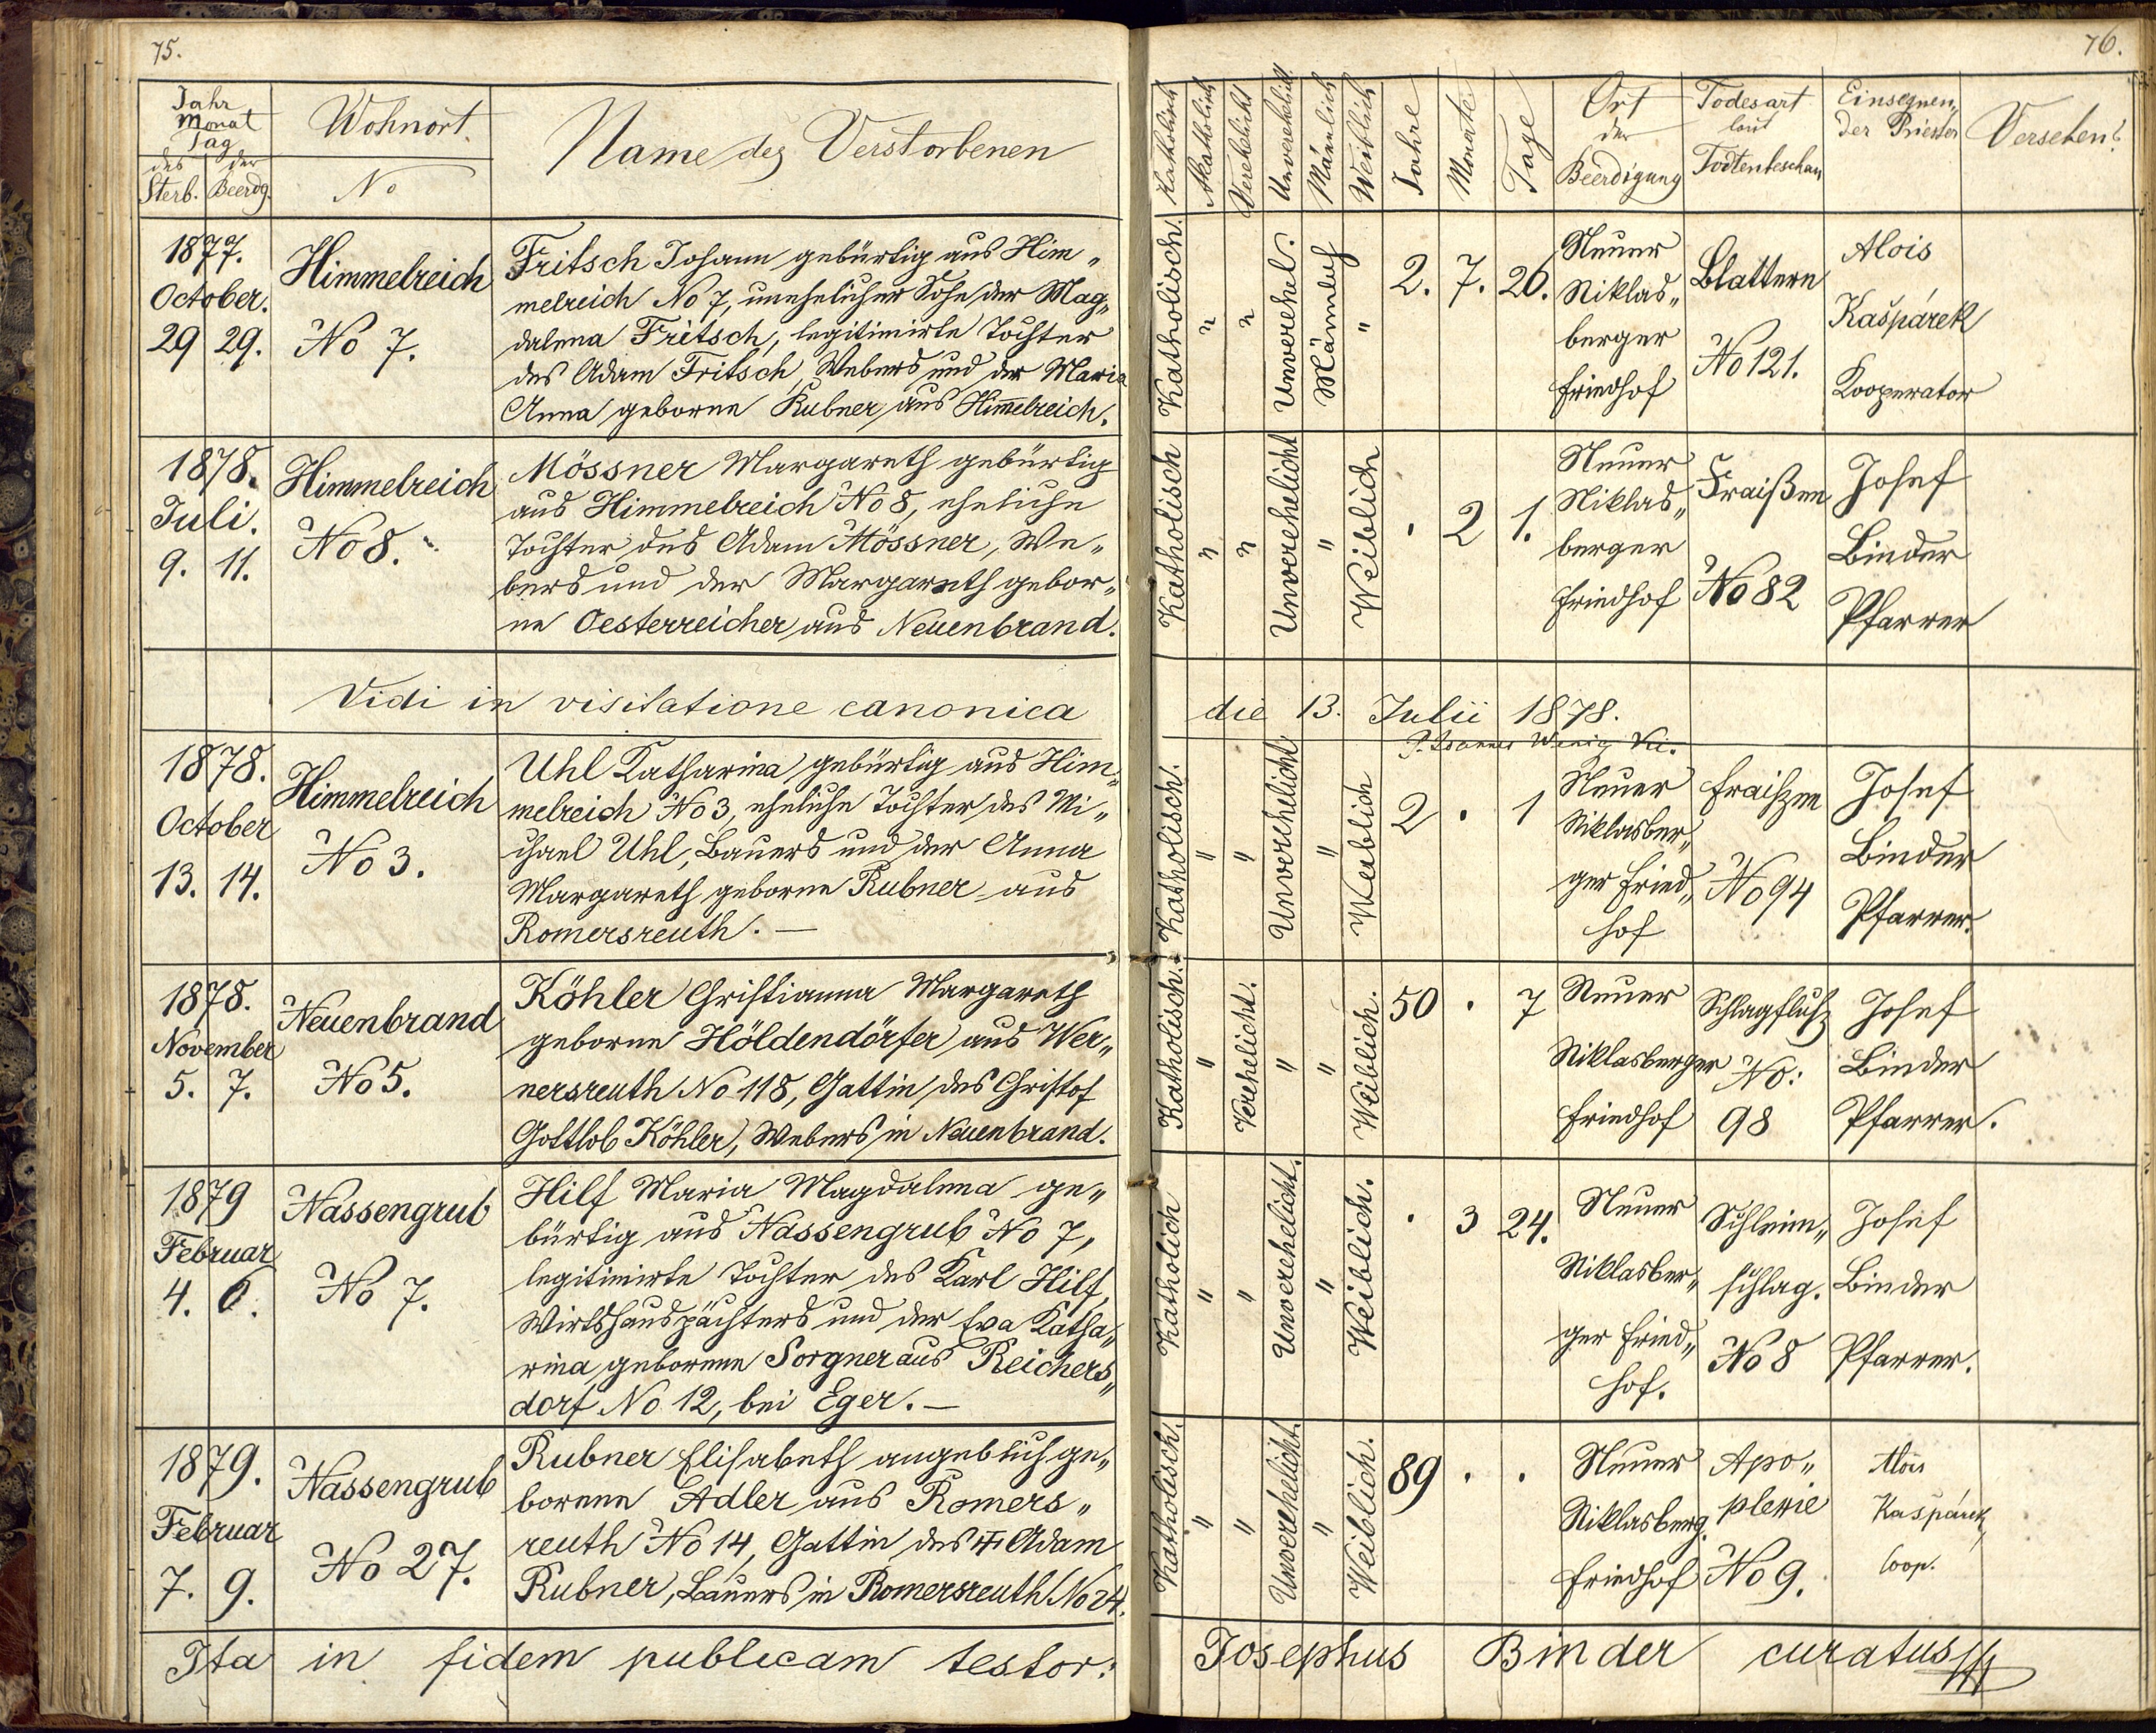 75.
Jahr
Monat
Tag
des
Sterb.
der
Beerdg.
Wohnort.
No
Name des Verstorbenen
1877.
October.
29 29.
Himmelreich
No 7.
Fritsch Johann gebürtig aus Him„
melreich No 7, unehelicher Sohn der Mag„
dalena Fritsch, legitimirte Tochter
des Adam Fritsch, Webers und der Maria
Anna geborne Rubner aus Himmelreich.
1878.
Juli.
9. 11.
Himmelreich
No 8.
Mössner Margareth gebürtig
aus Himmelreich No 8, eheliche
Tochter des Adam Mössner, We„
bers und der Margareth gebor„
ne Oesterreicher aus Neuenbrand.
Vidi in visitatione canonica
1878.
October
13. 14.
Himmelreich
No 3.
Uhl Katharina gebürtig aus Him„
melreich No 3, eheliche Tochter des Mi„
chael Uhl, Bauers und der Anna
Margareth geborne Rubner aus
Romersreuth. —
1878.
November
5. 7.
Neuenbrand
No 5.
Köhler Christianna Margareth
geborne Höldendörfer aus Wer„
nersreuth No 118, Gattin des Christof
Gottlob Köhler, Webers in Neuenbrand.
1879
Februar
4. 6.
Nassengrub
No 7.
Hilf Maria Magdalena ge„
bürtig aus Nassengrub No 7,
legitimirte Tochter des Karl Hilf,
Wirtshauspächters und der Eva Katha„
rina, geborene Sorgner aus Reichers„
dorf No 12, bei Eger. —
1879.
Februar
7. 9.
Nassengrub
No 27.
Rubner Elisabeth angeblich ge„
borene Adler aus Romers„
reuth No 14, Gattin des Adam
Rubner, Bauers in Romersreuth No 24.
Ita in fidem publicam testor:
76.
Katholisch
Akatholisch
Verehelicht
Unverehelicht
Männlich
Weiblich
Jahre
Monate
Tage
Ort
der
Beerdigung
Todesart
laut
Todtenbeschau
Einsegnen„
der Priester
Versehen?
Katholisch.
"
"
Unverehel.
Männlich
"
2. 7. 26.
Neuer
Niklas„
berger
Friedhof
Blattern
No 121.
Alois
Kašpárek
Kooperator
Katholisch
"
"
Unverehelicht
"
Weiblich
. 2 1.
Neuer
Niklas„
berger
Friedhof
Fraißen
No 82
Josef
Binder
Pfarrer
die 13. Julii 1878.
Katholisch.
"
"
Unverehelicht
"
Weiblich
2 . 1
Neuer
Niklasber„
ger Fried„
hof
Fraiszen
No 94
Josef
Binder
Pfarrer.
Katholisch.
"
Verehelicht.
"
"
Weiblich.
50 . 7
Neuer
Niklasberger
Friedhof
Schlagflusz
No:
98
Josef
Binder
Pfarrer.
Katholich
"
"
Unverehelicht.
"
Weiblich.
. 3 24.
Neuer
Niklasber„
ger Fried„
hof.
Schleim„
schlag.
No 8
Josef
Binder
Pfarrer.
Katholisch.
"
"
Unverehelicht.
"
Weiblich.
89 . .
Neuer
Niklasberg.
Friedhof
Apo„
plexie
No 9.
Alois
Kašpárek
Coop.
Josephus Binder curatus